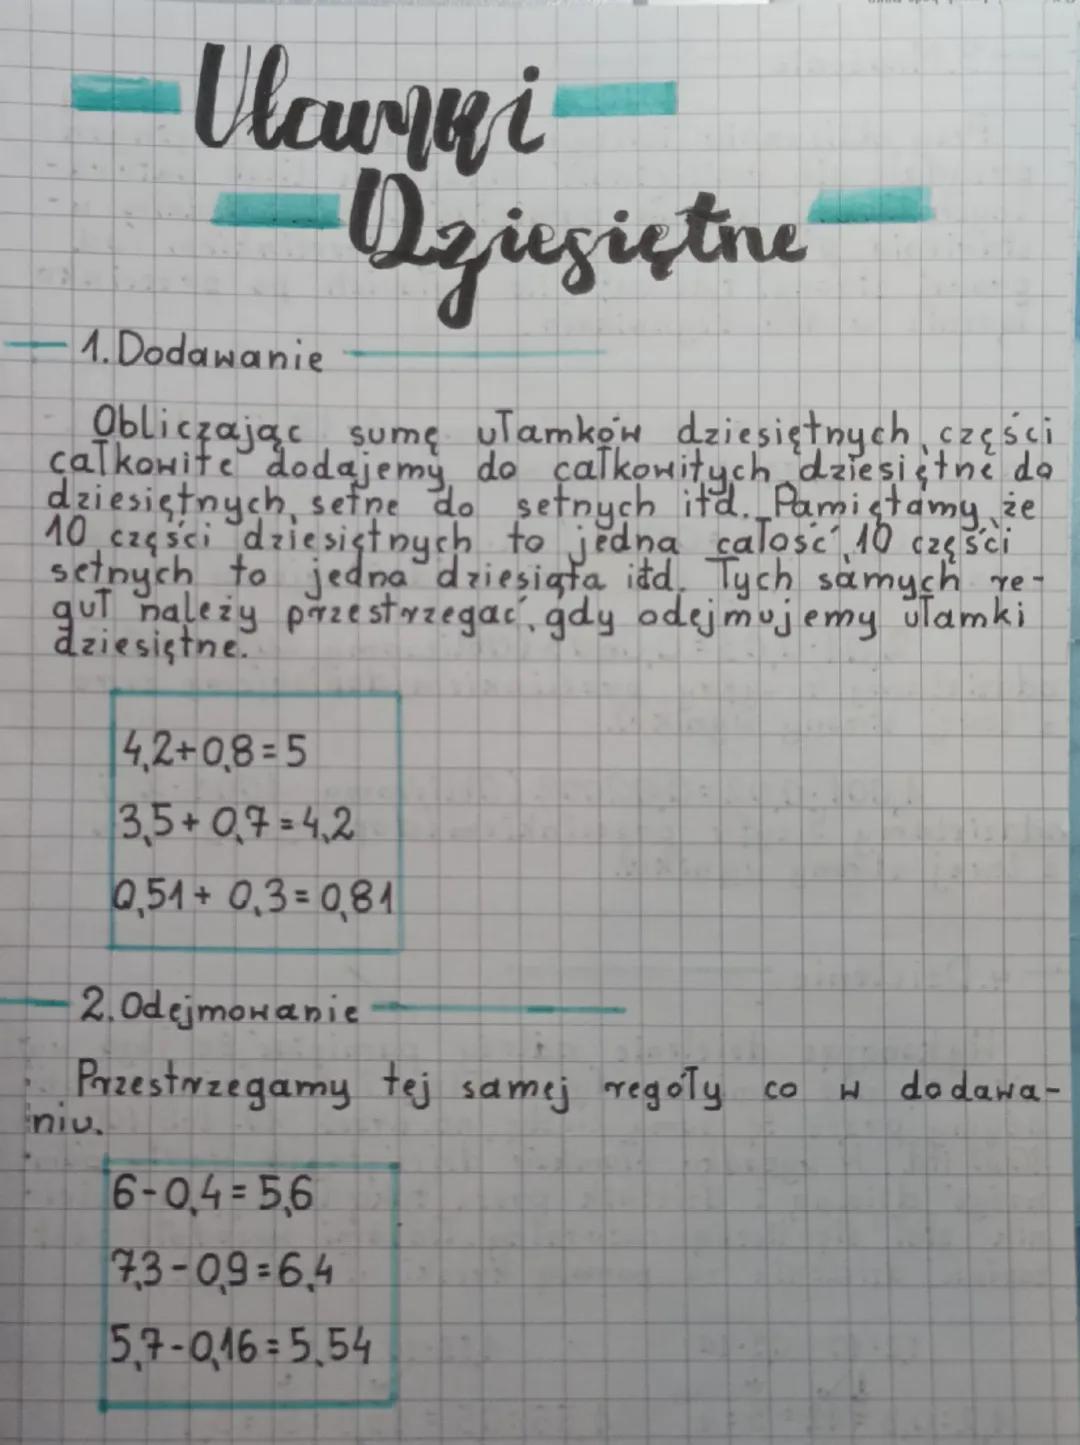 Ułamki
Dziesiętne
1. Dodawanie
Obliczając sumę ułamków dziesiętnych, części
całkowite dodajemy do całkowitych, dziesiętne do
dziesiętnych, setne do setnych itd. Pamiętamy, że
10 części dziesiętnych to jedna całość, 10 części
setnych to jedna dziesiąta itd. Tych samych re-
guł należy przestrzegać, gdy odejmujemy ułamki
dziesiętne.
4,2+0,8=5
3,5+0,7=4,2
0,51+0,3=0,81
2. Odejmowanie
Przestrzegamy tej samej regóły co w dodawa-
niu.
6-0,4=5,6
7,3-0,9=6,4
5,7-0,16=5,54